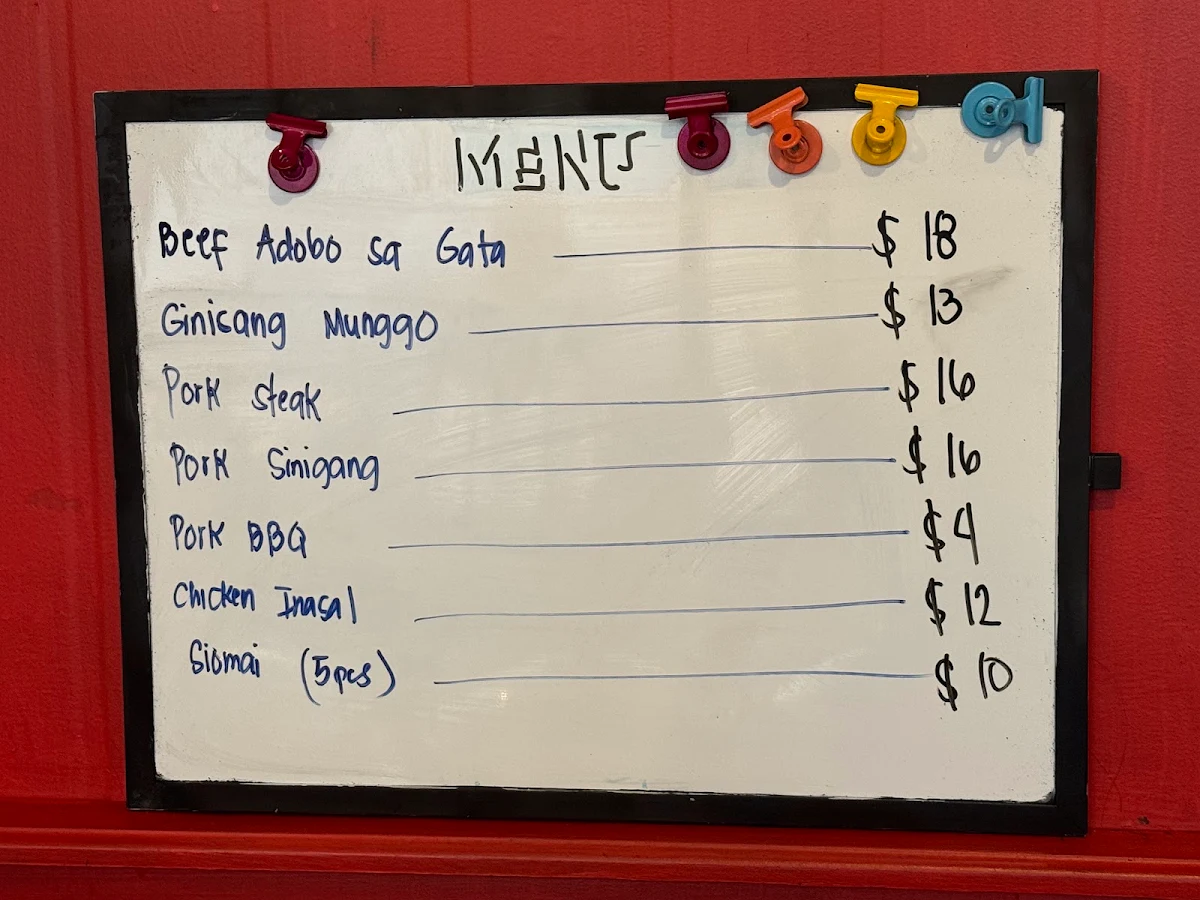 MENU
Beef Adobo sa Gata $ 18
Ginisang Munggo $ 13
Pork steak $ 16
Pork Sinigang $ 16
Pork BBQ $4
Chicken Inasal $ 12
Siomai (5pcs) $ 10